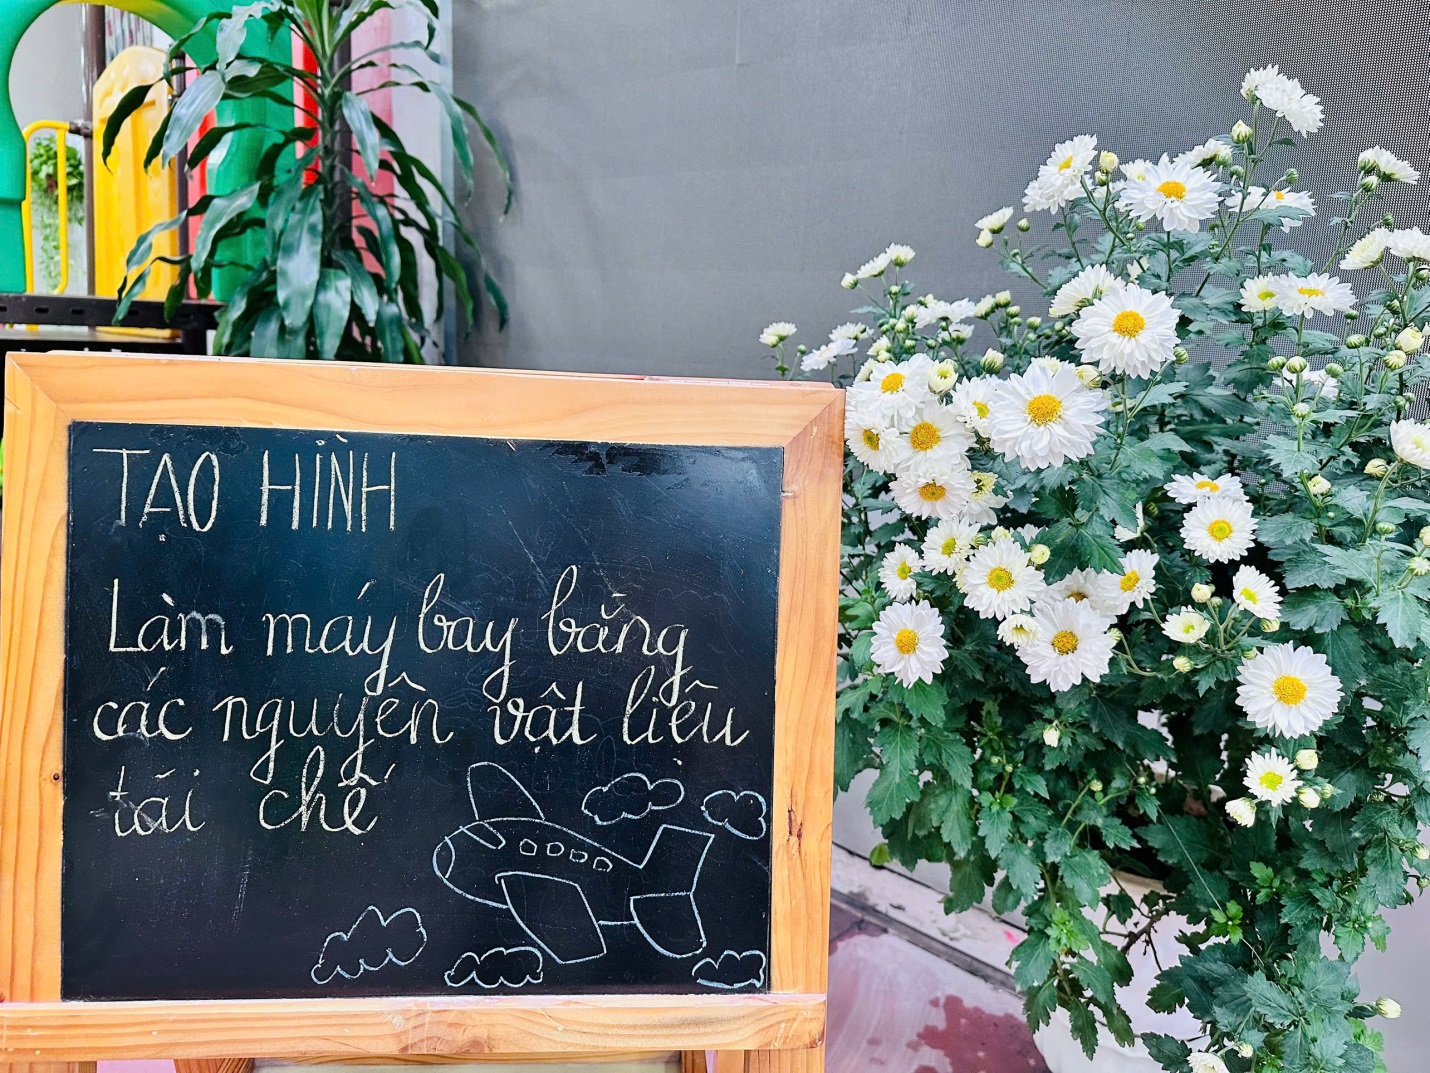 TẠO HÌNH
Làm máy bay bằng
các nguyên vật liệu
tái chế